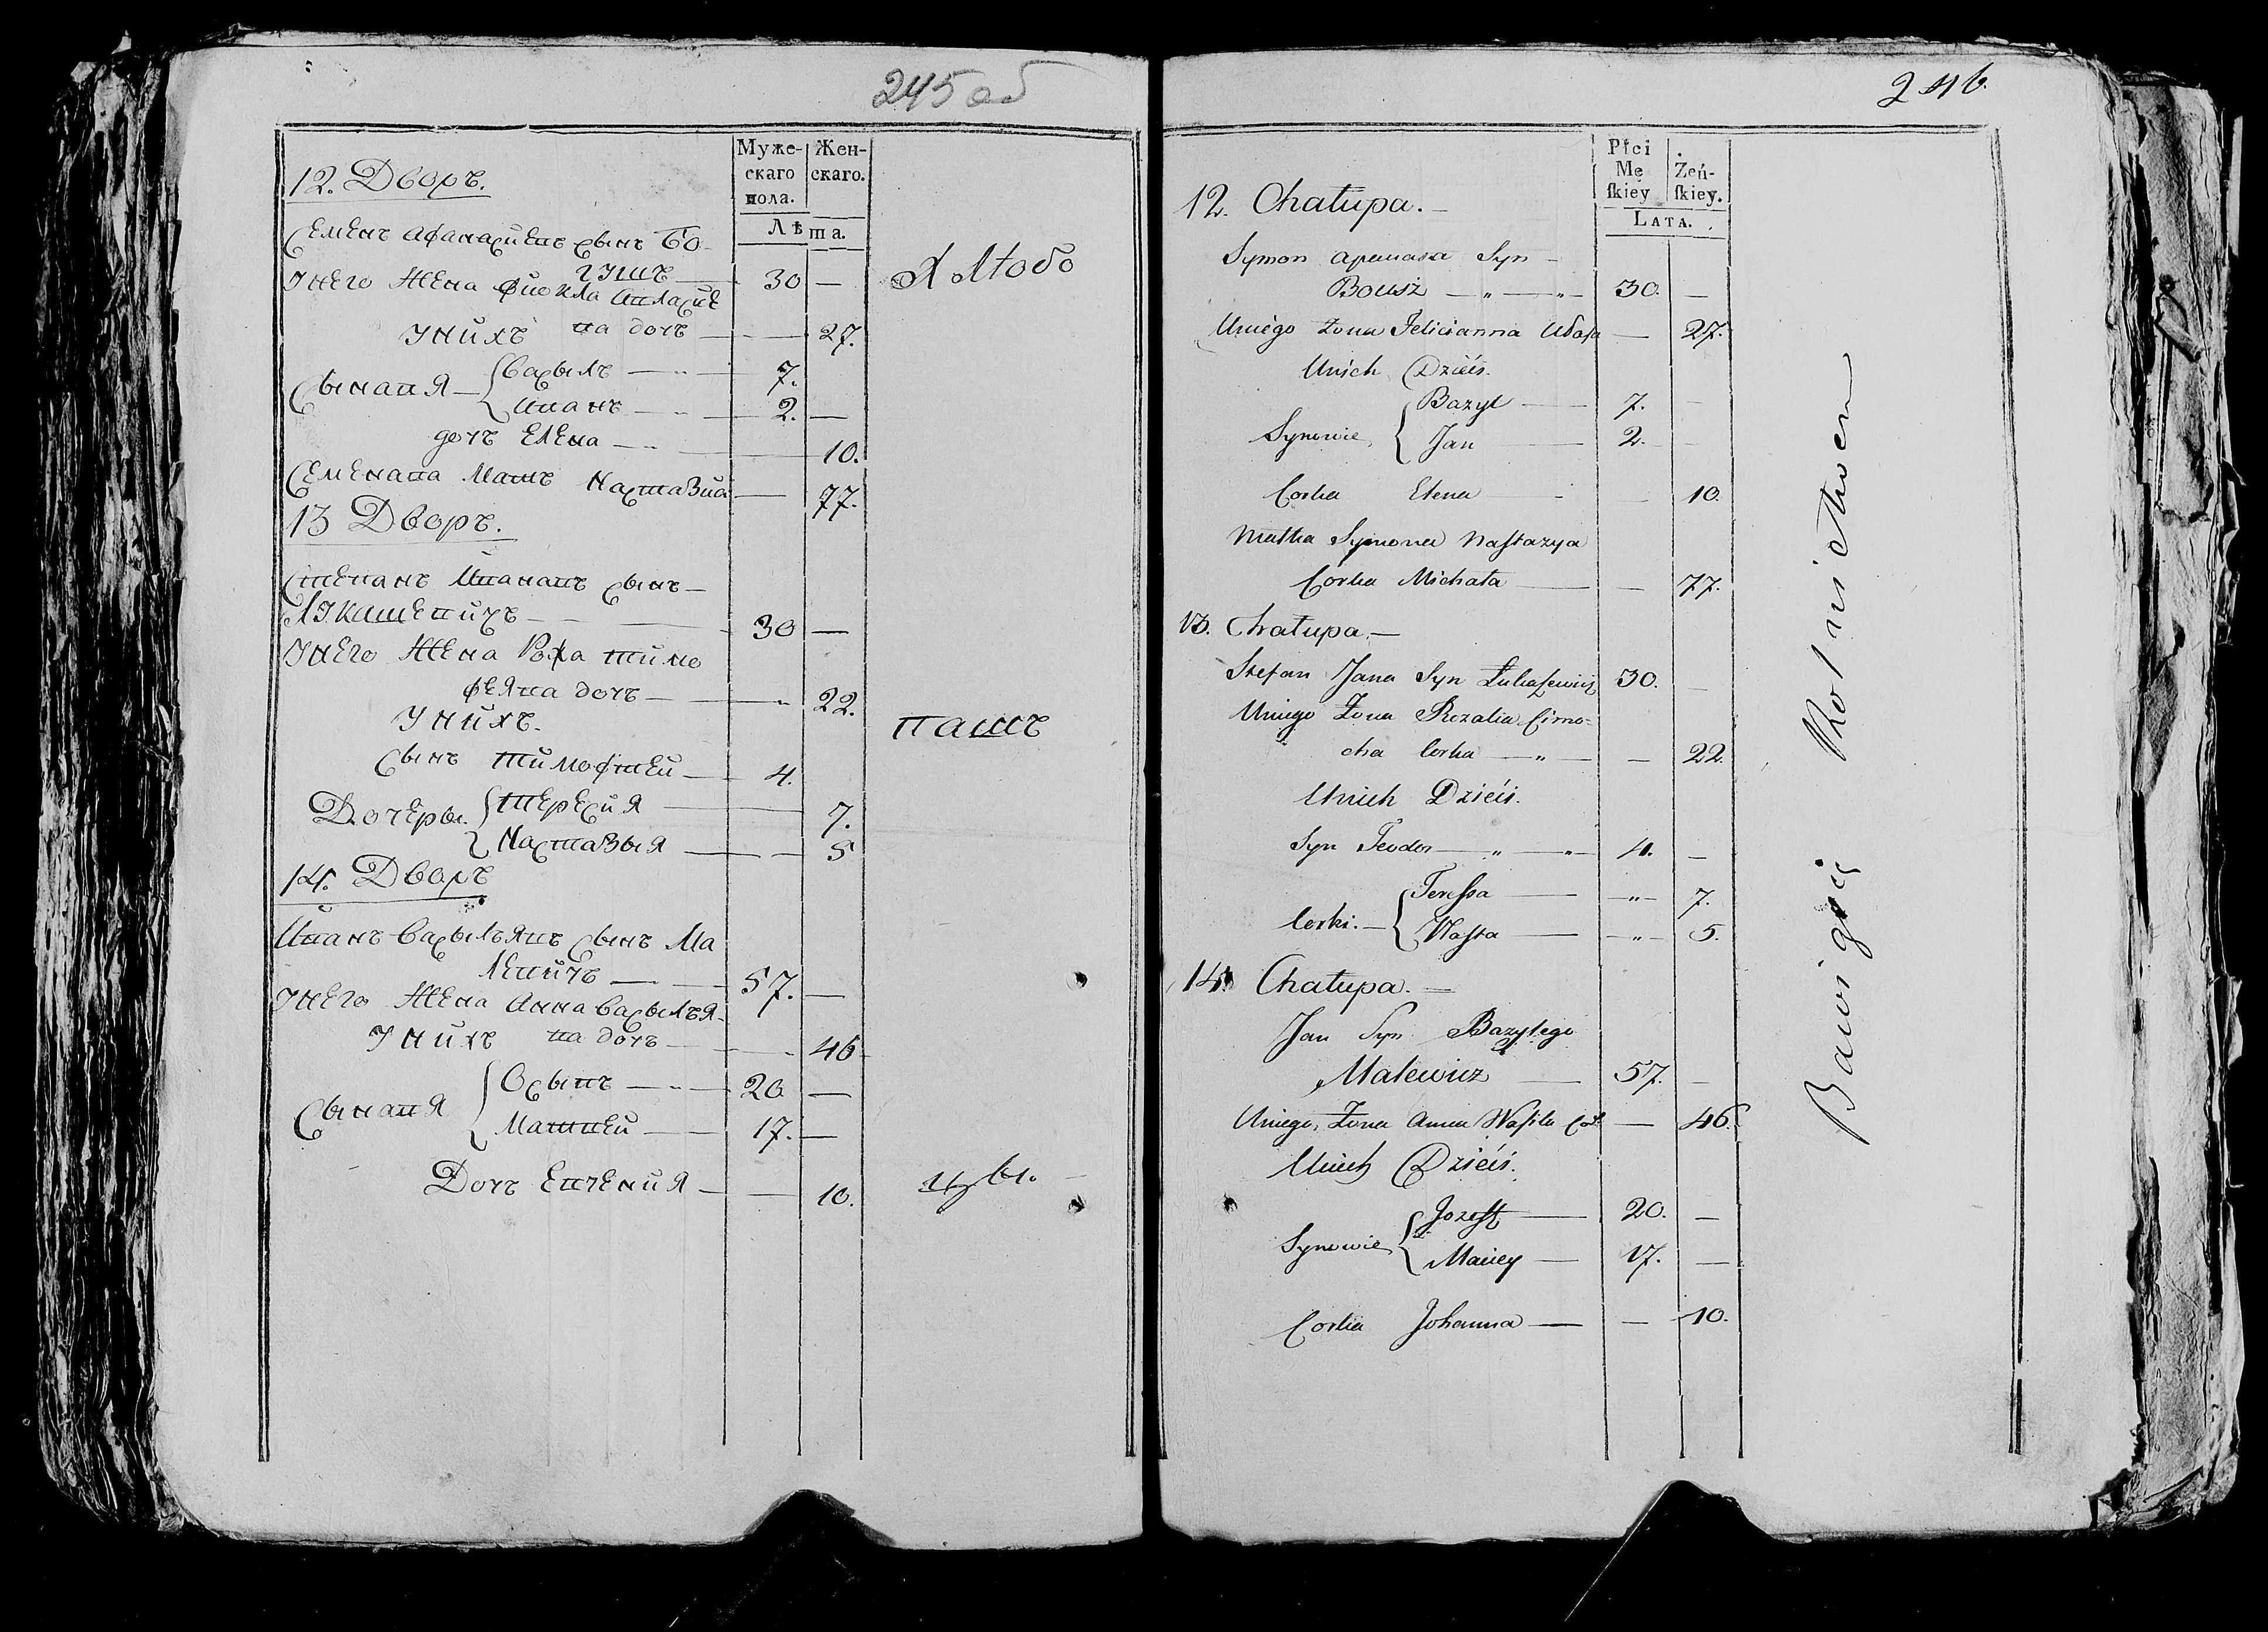 245 об
Муже-
скаго
пола.
Жен-
скаго.
Лѣта.
12. Дворъ.
Семенъ Афанасиевъ сынъ Бо
гушъ — 30 —
У него жена Фиокла Овласие
ва дочъ — 27.
У нихъ
Сыновя Василъ — 7.
Иванъ — 2. —
дочъ Елена — 10.
Семенова Мать Настазиа — 77.
13 Дворъ.
Степанъ Ивановъ сынъ —
Лукашевичъ — 30 —
У него жена Роза Тимо
феява дочъ — 22.
У нихъ.
Сынъ Тимофтей — 4.
Дочеры. Тересия — 7.
Настазыя — 5
14. Дворъ
Иванъ Васылъявъ сынъ Ма
левичъ — 57. —
У него жена Анна Васылъя-
ва дочъ — 46
У нихъ
Сыновя Осыпъ — 20 —
Матвей — 17. —
Дочъ Евгения — 10.
Хлѣбо
паш
цы.
246.
Płci
Mę
ſkiey
Żeń-
ſkiey.
LATA.
12. Chałupa. —
Symon Apanasa Syn —
Bousż — 30. —
Uniego Żona Felicianna — 27.
Unich Dzieci.
Synowie Bazyl — 7. —
Jan — 2. —
Corka Elena — 10.
Matka Symona Nastazya
Corka Michała — 77.
13. Chałupa. —
Stefan Jana Syn Łukaſzewicz 30. —
Uniego Żona Rozalia Cimo=
cha Corka — 22.
Unich Dzieci.
Syn Teodor — 4. —
Corki. — Tereſsa — 7.
Naſta — 5.
14. Chałupa. —
Jan Syn Bazylego
Malewicz — 57. —
Uniego Żona Anna Waſila Cor — 46.
Unich Dzieci.
Synowie Jozeff — 20. —
Maciey — 17. —
Corka Johanna — 10.
Bawiącÿ się Rolnictwem